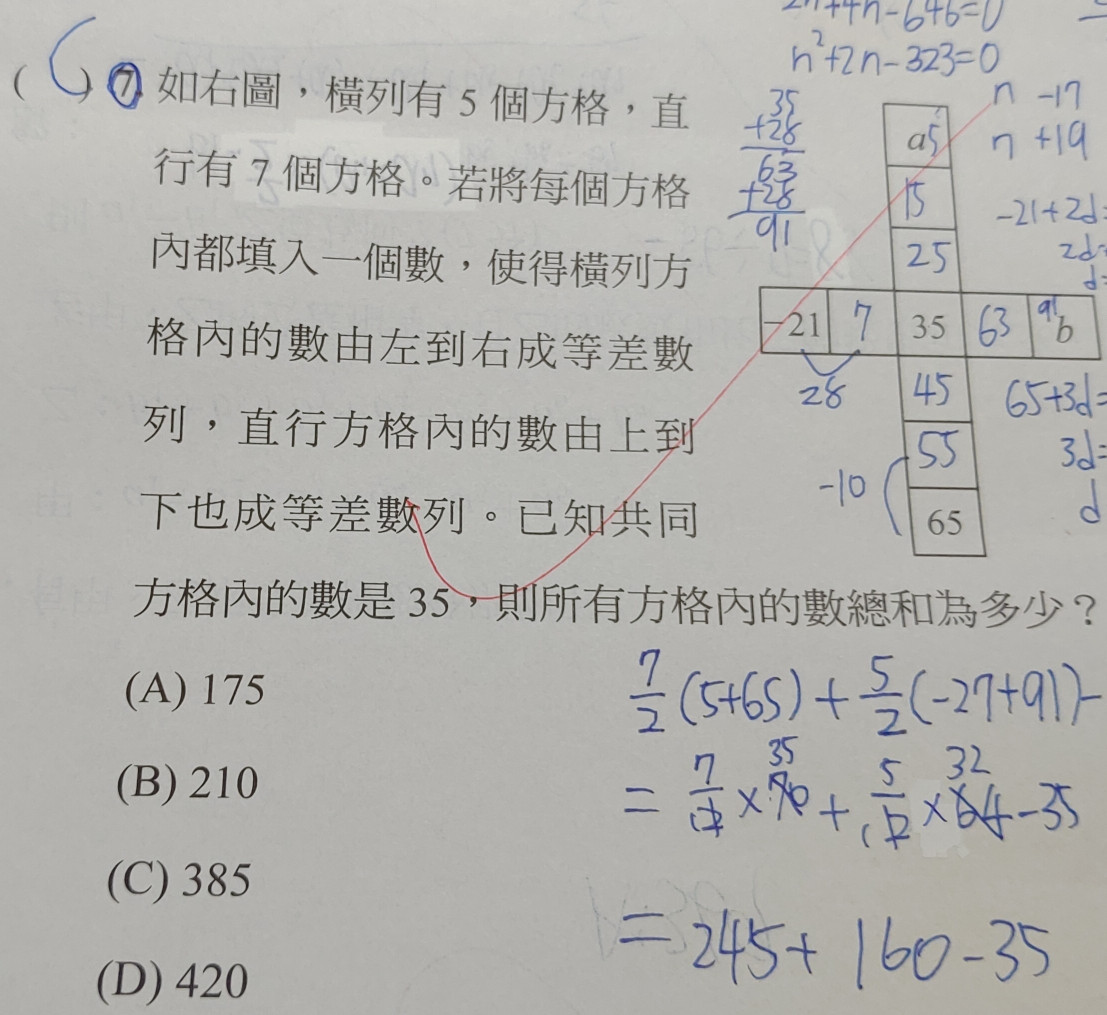 2n+4n-646=0
n²+2n-323=0
n -17
n +19
( C ) 7. 如右圖，橫列有 5 個方格，直
行有 7 個方格。若將每個方格
內都填入一個數，使得橫列方
格內的數由左到右成等差數
列，直行方格內的數由上到
下也成等差數列。已知共同
方格內的數是 35，則所有方格內的數總和為多少？
35
+28
63
+28
91
a 5
15
25
-21 7 35 63 91 b
28
45
55
65
-10
-21+2d=
2d=
d=
65+3d=
3d=
d
(A) 175
(B) 210
(C) 385
(D) 420
7/2 (5+65) + 5/2 (-27+91) -
= 7/2 × 70 35 + 5/2 × 64 32 - 35
= 245 + 160 - 35